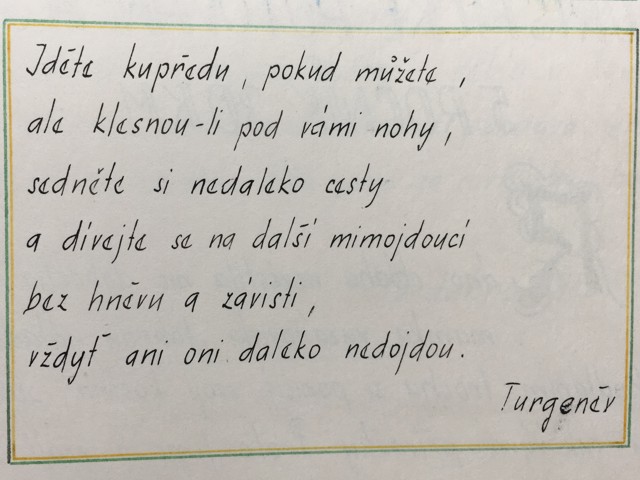 Jděte kupředu, pokud můžete,
ale klesnou-li pod vámi nohy,
sedněte si nedaleko cesty
a dívejte se na další mimojdoucí
bez hněvu a závisti,
vždyť ani oni daleko nedojdou.
Turgeněv